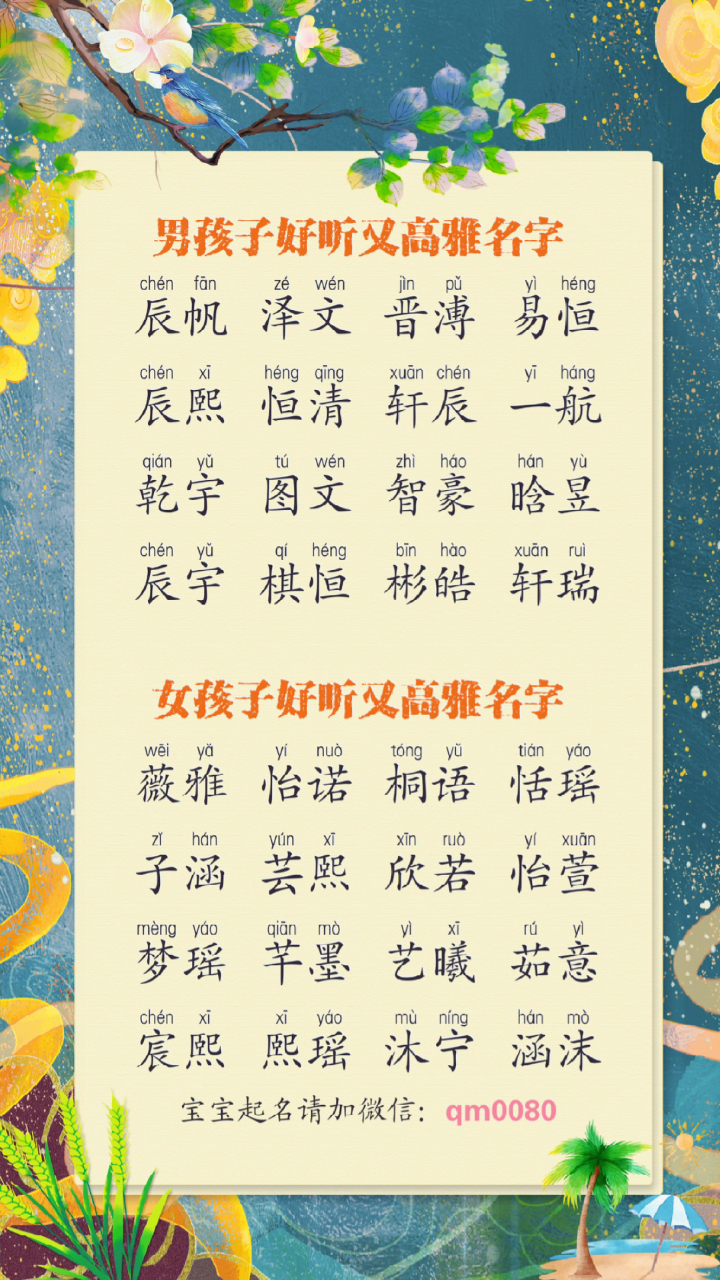 男孩子好听又高雅名字
chén fān zé wén jìn pǔ yì héng
辰帆 泽文 晋溥 易恒
chén xī héng qīng xuān chén yī háng
辰熙 恒清 轩辰 一航
qián yǔ tú wén zhì háo hán yù
乾宇 图文 智豪 晗昱
chén yǔ qí héng bīn hào xuān ruì
辰宇 棋恒 彬皓 轩瑞
女孩子好听又高雅名字
wēi yǎ yí nuò tóng yǔ tián yáo
薇雅 怡诺 桐语 恬瑶
zǐ hán yún xī xīn ruò yí xuān
子涵 芸熙 欣若 怡萱
mèng yáo qiān mò yì xī rú yì
梦瑶 芊墨 艺曦 茹意
chén xī xī yáo mù níng hán mò
宸熙 熙瑶 沐宁 涵沫
宝宝起名请加微信：qm0080